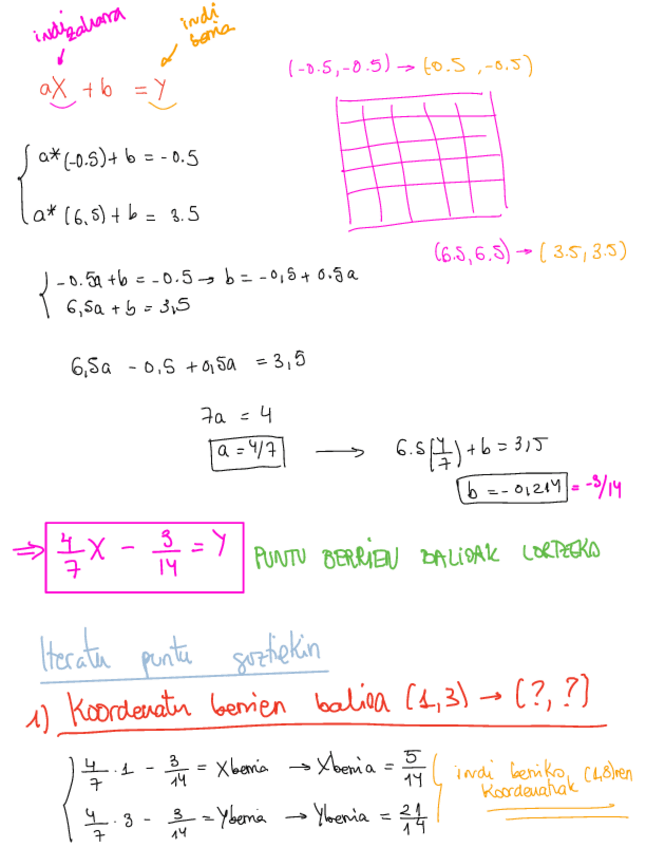 indizaharra
indi
berria
aX + b = Y
(-0.5, -0.5) → (-0.5, -0.5)
a*(-0.5) + b = -0.5
a*(6,5) + b = 3.5
(6.5, 6.5) → (3.5, 3.5)
-0.5a + b = -0.5 → b = -0,5 + 0.5a
6,5a + b = 3,5
6,5a - 0,5 + 0,5a = 3,5
7a = 4
a = 4/7 → 6.5(4/7) + b = 3,5
b = -0,214 = -3/14
⇒ 4/7 X - 3/14 = Y PUNTU BERRIEN BALIOAK LORTZEKO
Iteratu puntu guztiekin
1) Koordenatu berrien balioa (1,3) → (?,?)
4/7 · 1 - 3/14 = Xberria → Xberria = 5/14
4/7 · 3 - 3/14 = Yberria → Yberria = 21/14
indi berriko (1,3)ren
koordenatuak